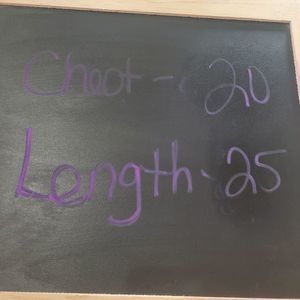 Chest - 20
Length - 25